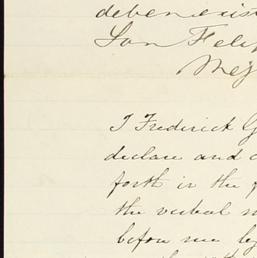 deben exist
San Felip
Mej
I Frederick G
declare and c
forth in the
the verbal
before me by